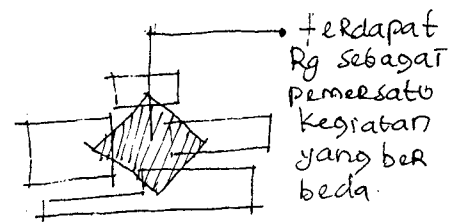 teRdapat
Rg sebagai
pemersato
kegiatan
yang beR
beda.